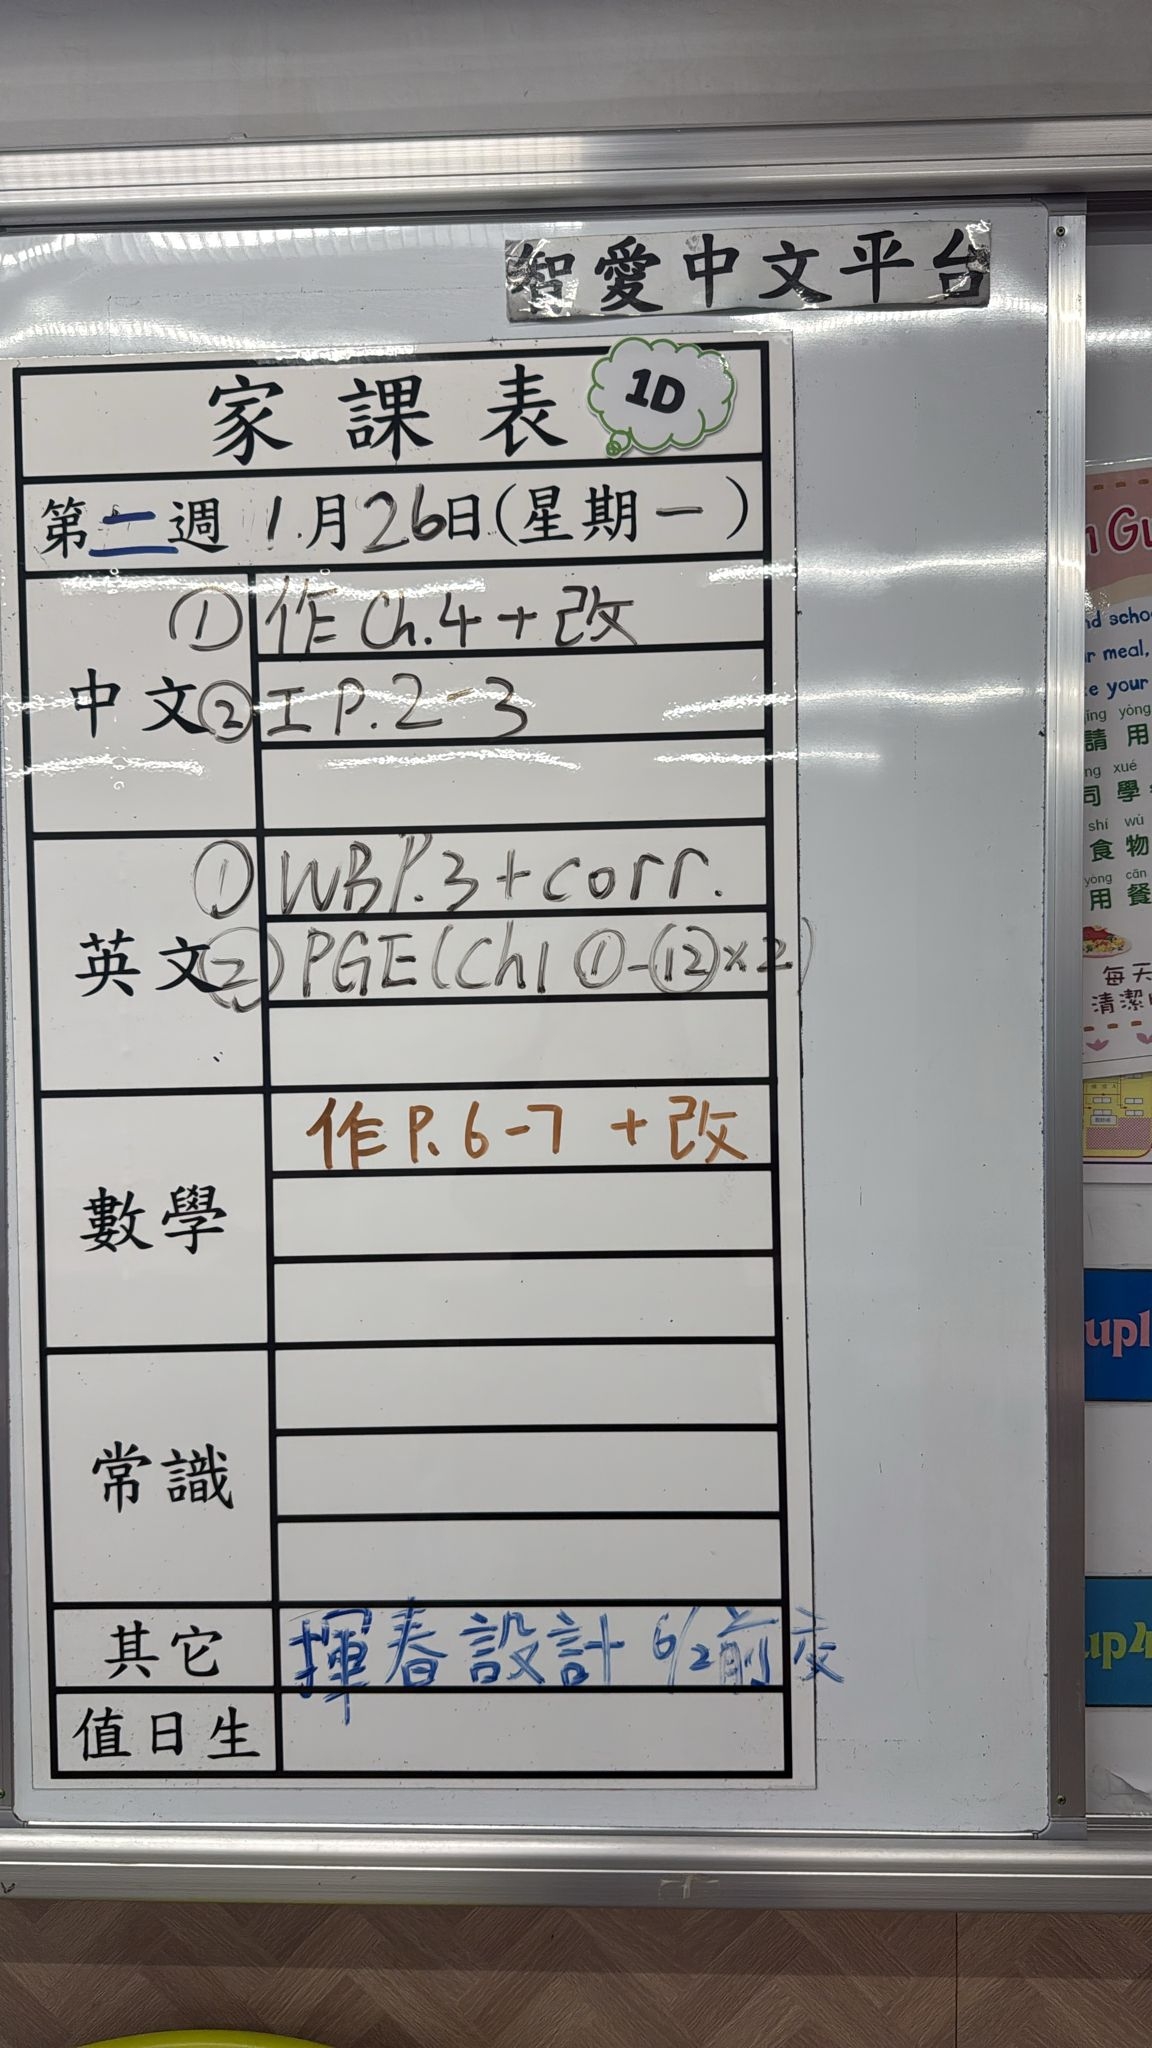 智愛中文平台
家課表 1D
第二週 1月26日(星期一)
中文
① 作 Ch.4 + 改
② 工 P.2-3
英文
① WB P.3 + corr.
② PGE (Ch1 ①-⑫×2)
數學
作 P.6-7 + 改
常識
其它
揮春設計 6/2前交
值日生
n Gu
nd scho
r meal,
e your
qǐng yòng
請用
ng xué
同學
shí wù
食物
yòng cān
用餐
每天
清潔
up1
up4